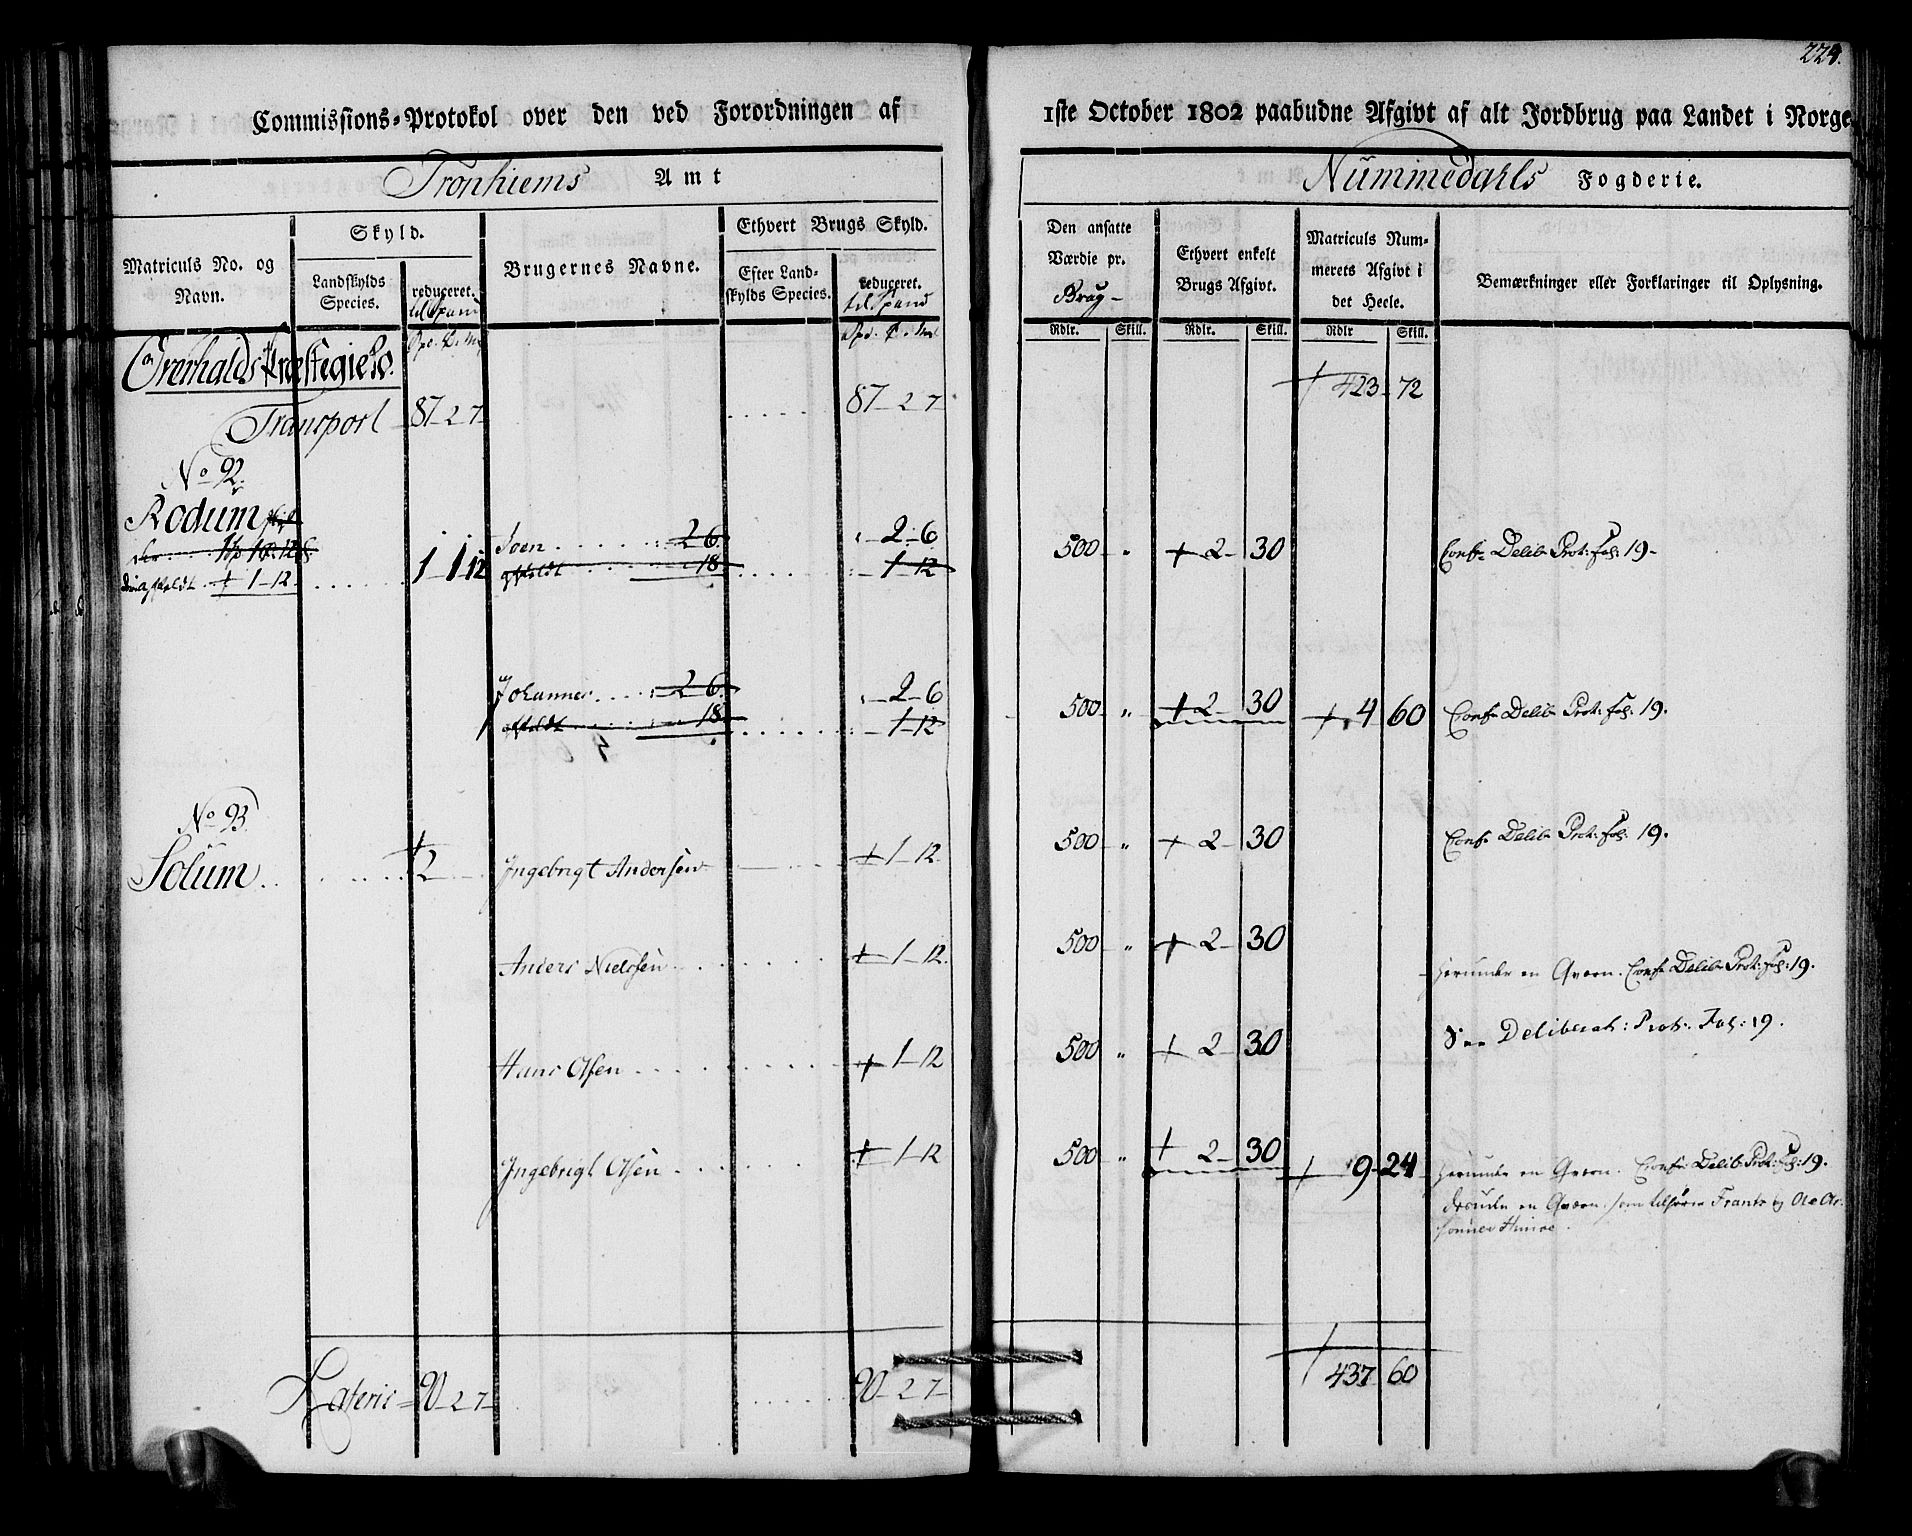 224.
Commissions-Protokol over den ved Forordningen af 1ste October 1802 paabudne Afgivt af alt Jordbrug paa Landet i Norge
Tronhiems Amt Nummedahls Fogderie.
Matriculs No. og Navn. Skyld. Landskylds Species. reduceret. til Spand
Brugernes Navne. Ethvert Brugs Skyld. Efter Landskylds Species. reduceret. til Spand
Den ansatte Værdie pr. Brug Ethvert enkelt Brugs Afgivt. Matriculs Nummerets Afgivt i det Heele. Bemærkninger eller Forklaringer til Oplysning.
Rdlr. Skill. Rdlr. Skill. Rdlr Skill.
Overhalds Præstegield.
Transport 87 2 7 87 2 7 423 72
No 92.
Rodum
1 1 12 Joen 2 6 2 6 500 " 2 30 Conf: Delib: Prot: Fol: 19
affældt 1 12 18 1 12
Johannes 2 6 2 6 500 " 2 30 4 60 Conf: Delib: Prot: Fol: 19.
affældt 18 1 12
No 93.
Solum 2 Ingebrigt Andersen 1 12 500 " 2 30 Conf: Delib: Prot: Fol: 19.
Anders Nielssen 1 12 500 " 2 30 herunder en Qværn. Conf: Delib: Prot: Fol: 19.
Hans Olsen 1 12 500 " 2 30 See Deliberat: Prot: Fol: 19.
Ingebrigt Olsen 1 12 500 " 2 30 9 24 herunder en Qværn. Conf: Delib: Prot: Fol: 19.
desuden en Qværn som tilhører Frants og Ole
Lateris 90 2 7 90 2 7 437 60